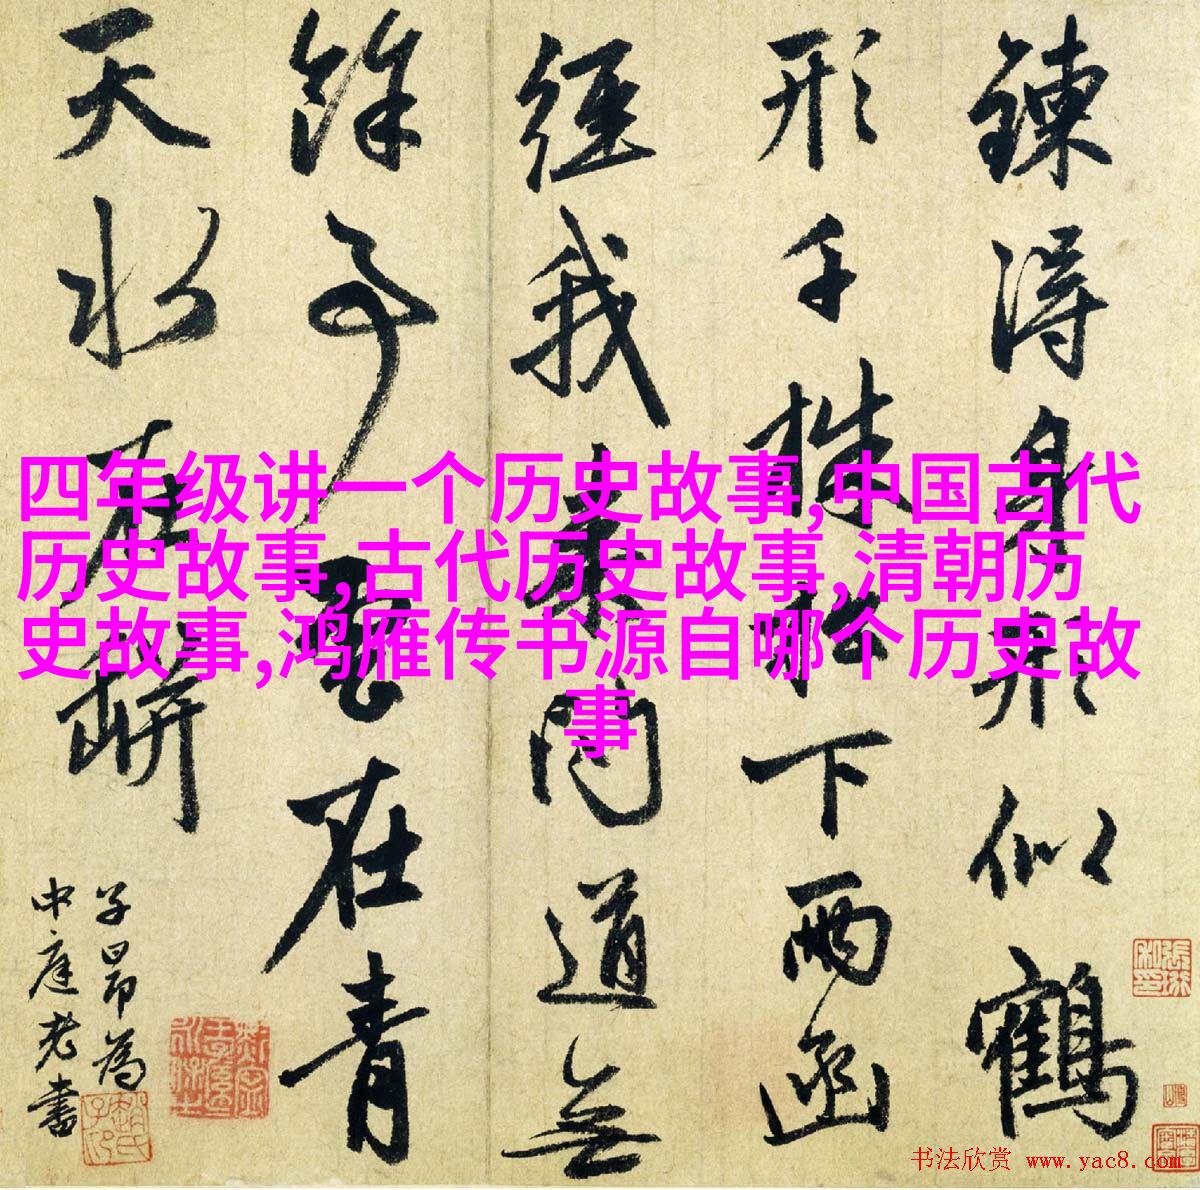 鍊得身形似鶴
形千株松下兩函
經我來問道無
餘事雲在青
天水在缾
子昂為
中庭老書
四年级讲一个历史故事,中国古代
历史故事,古代历史故事,清朝历
史故事,鸿雁传书源自哪个历史故
事
书法欣赏 www.yac8.com